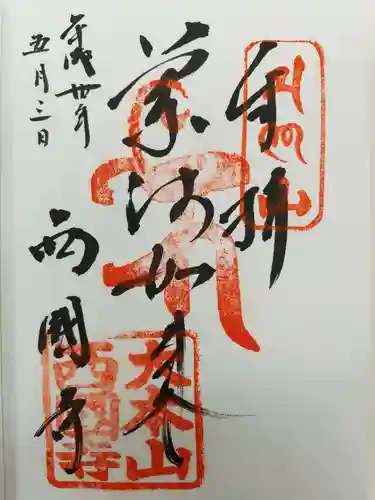 奉拝
薬師如来
西國寺
平成卅年
五月三日
大本山
西國寺